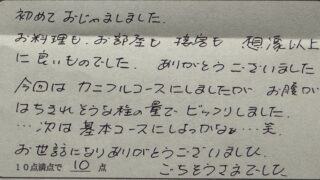 初めて おじゃましました.
お料理も、お部屋も 接客も 想像以上
に良いものでした. ありがとうございました
今回は カニフルコースにしましたが お腹が
はちきれそうな程の量で ビックリしました.
…次は 基本コースにしよっかなぁ…笑.
お世話になりありがとうございました
10点満点で 10 点 ごちそうさまでした.